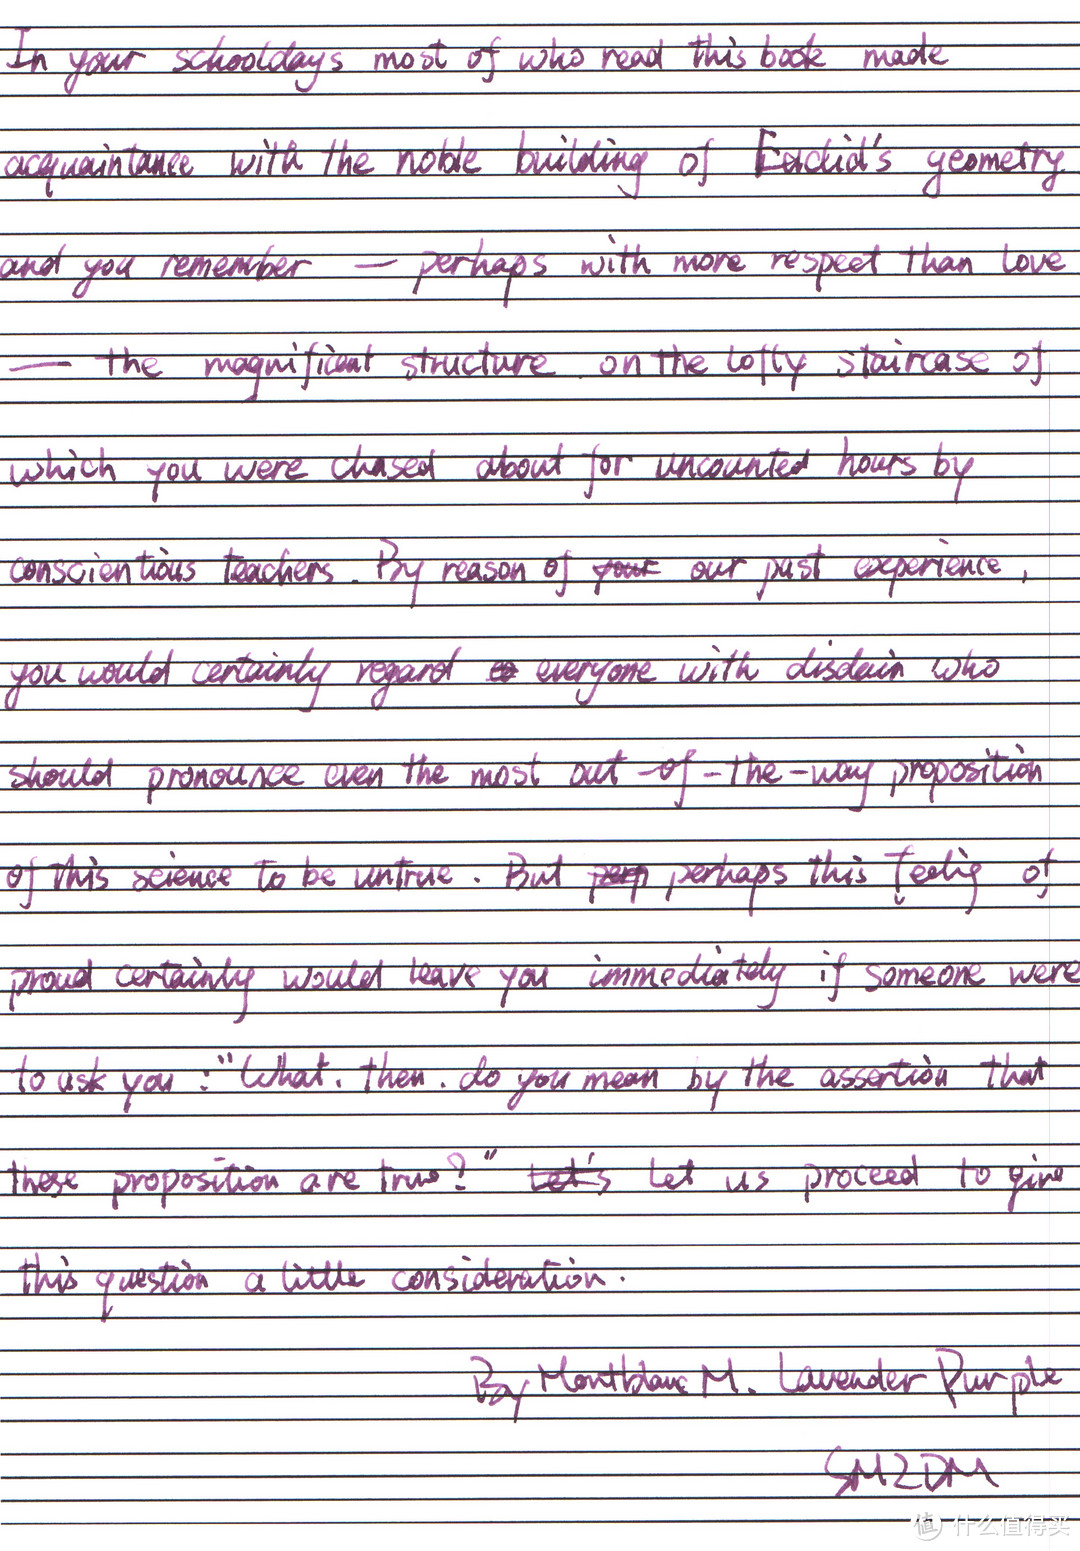 In your schooldays most of who read this book made
acquaintance with the noble building of Euclid's geometry
and you remember — perhaps with more respect than love
— the magnificant structure on the lofty staircase of
which you were chased about for uncounted hours by
conscientious teachers. By reason of your our past experience,
you would certainly regard everyone with disdain who
should pronounce even the most out-of-the-way proposition
of this science to be untrue. But perp perhaps this feelig of
proud certainly would leave you immediately if someone were
to ask you : "What. then. do you mean by the assertion that
these proposition are true?" Let's Let us proceed to give
this question a little consideration.
By Montblanc M. Lavender Purple
SMZDM
值 什么值得买